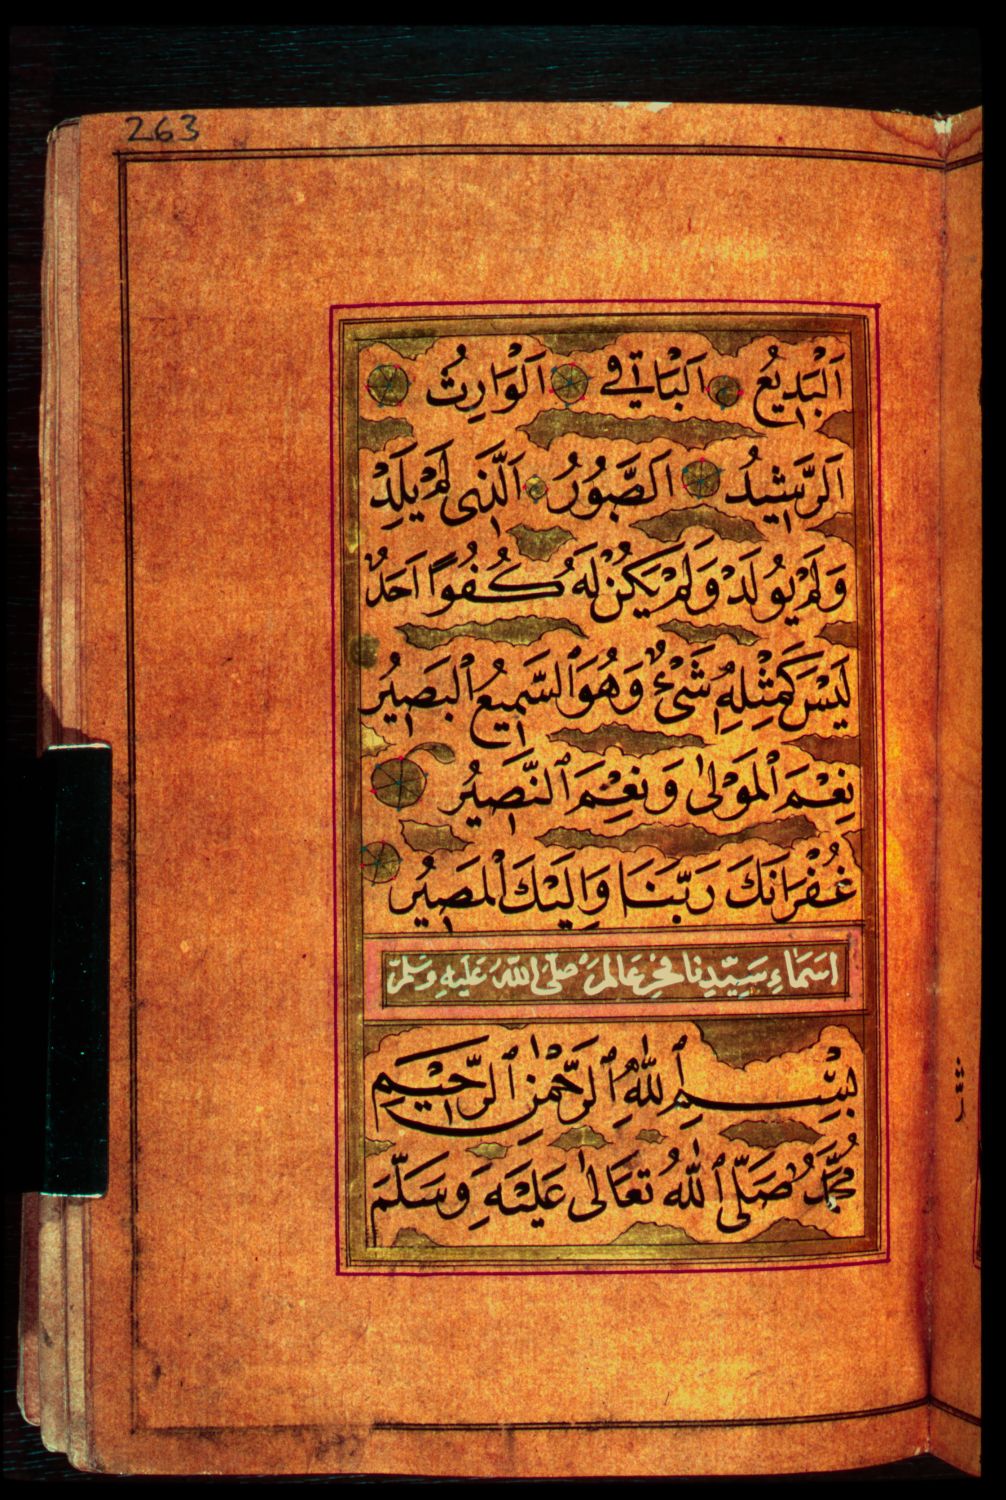 263
اَلْبَدِيعُ اَلْبَاقِي اَلْوَارِثُ
اَلرَّشِيدُ اَلصَّبُورُ اَلَّذِي لَمْ يَلِدْ
وَلَمْ يُولَدْ وَلَمْ يَكُنْ لَهُ كُفُوًا اَحَدٌ
لَيْسَ كَمِثْلِهِ شَيْءٌ وَهُوَ ٱلسَّمِيعُ ٱلْبَصِيرُ
نِعْمَ ٱلْمَوْلىٰ وَنِعْمَ ٱلنَّصِيرُ
غُفْرَانَكَ رَبَّنَا وَاِلَيْكَ ٱلْمَصِيرُ
اسَمَاءِ سَيِّدِنَا فَخْرِ عَالَمْ صَلَّى اللّٰهُ عَلَيْهِ وَسَلَّمْ
بِسْمِ ٱللّٰهِ ٱلرَّحْمٰنِ ٱلرَّحِيمِ
مُحَمَّدٌ صَلَّى ٱللّٰهُ تَعَالىٰ عَلَيْهِ وَسَلَّمَ